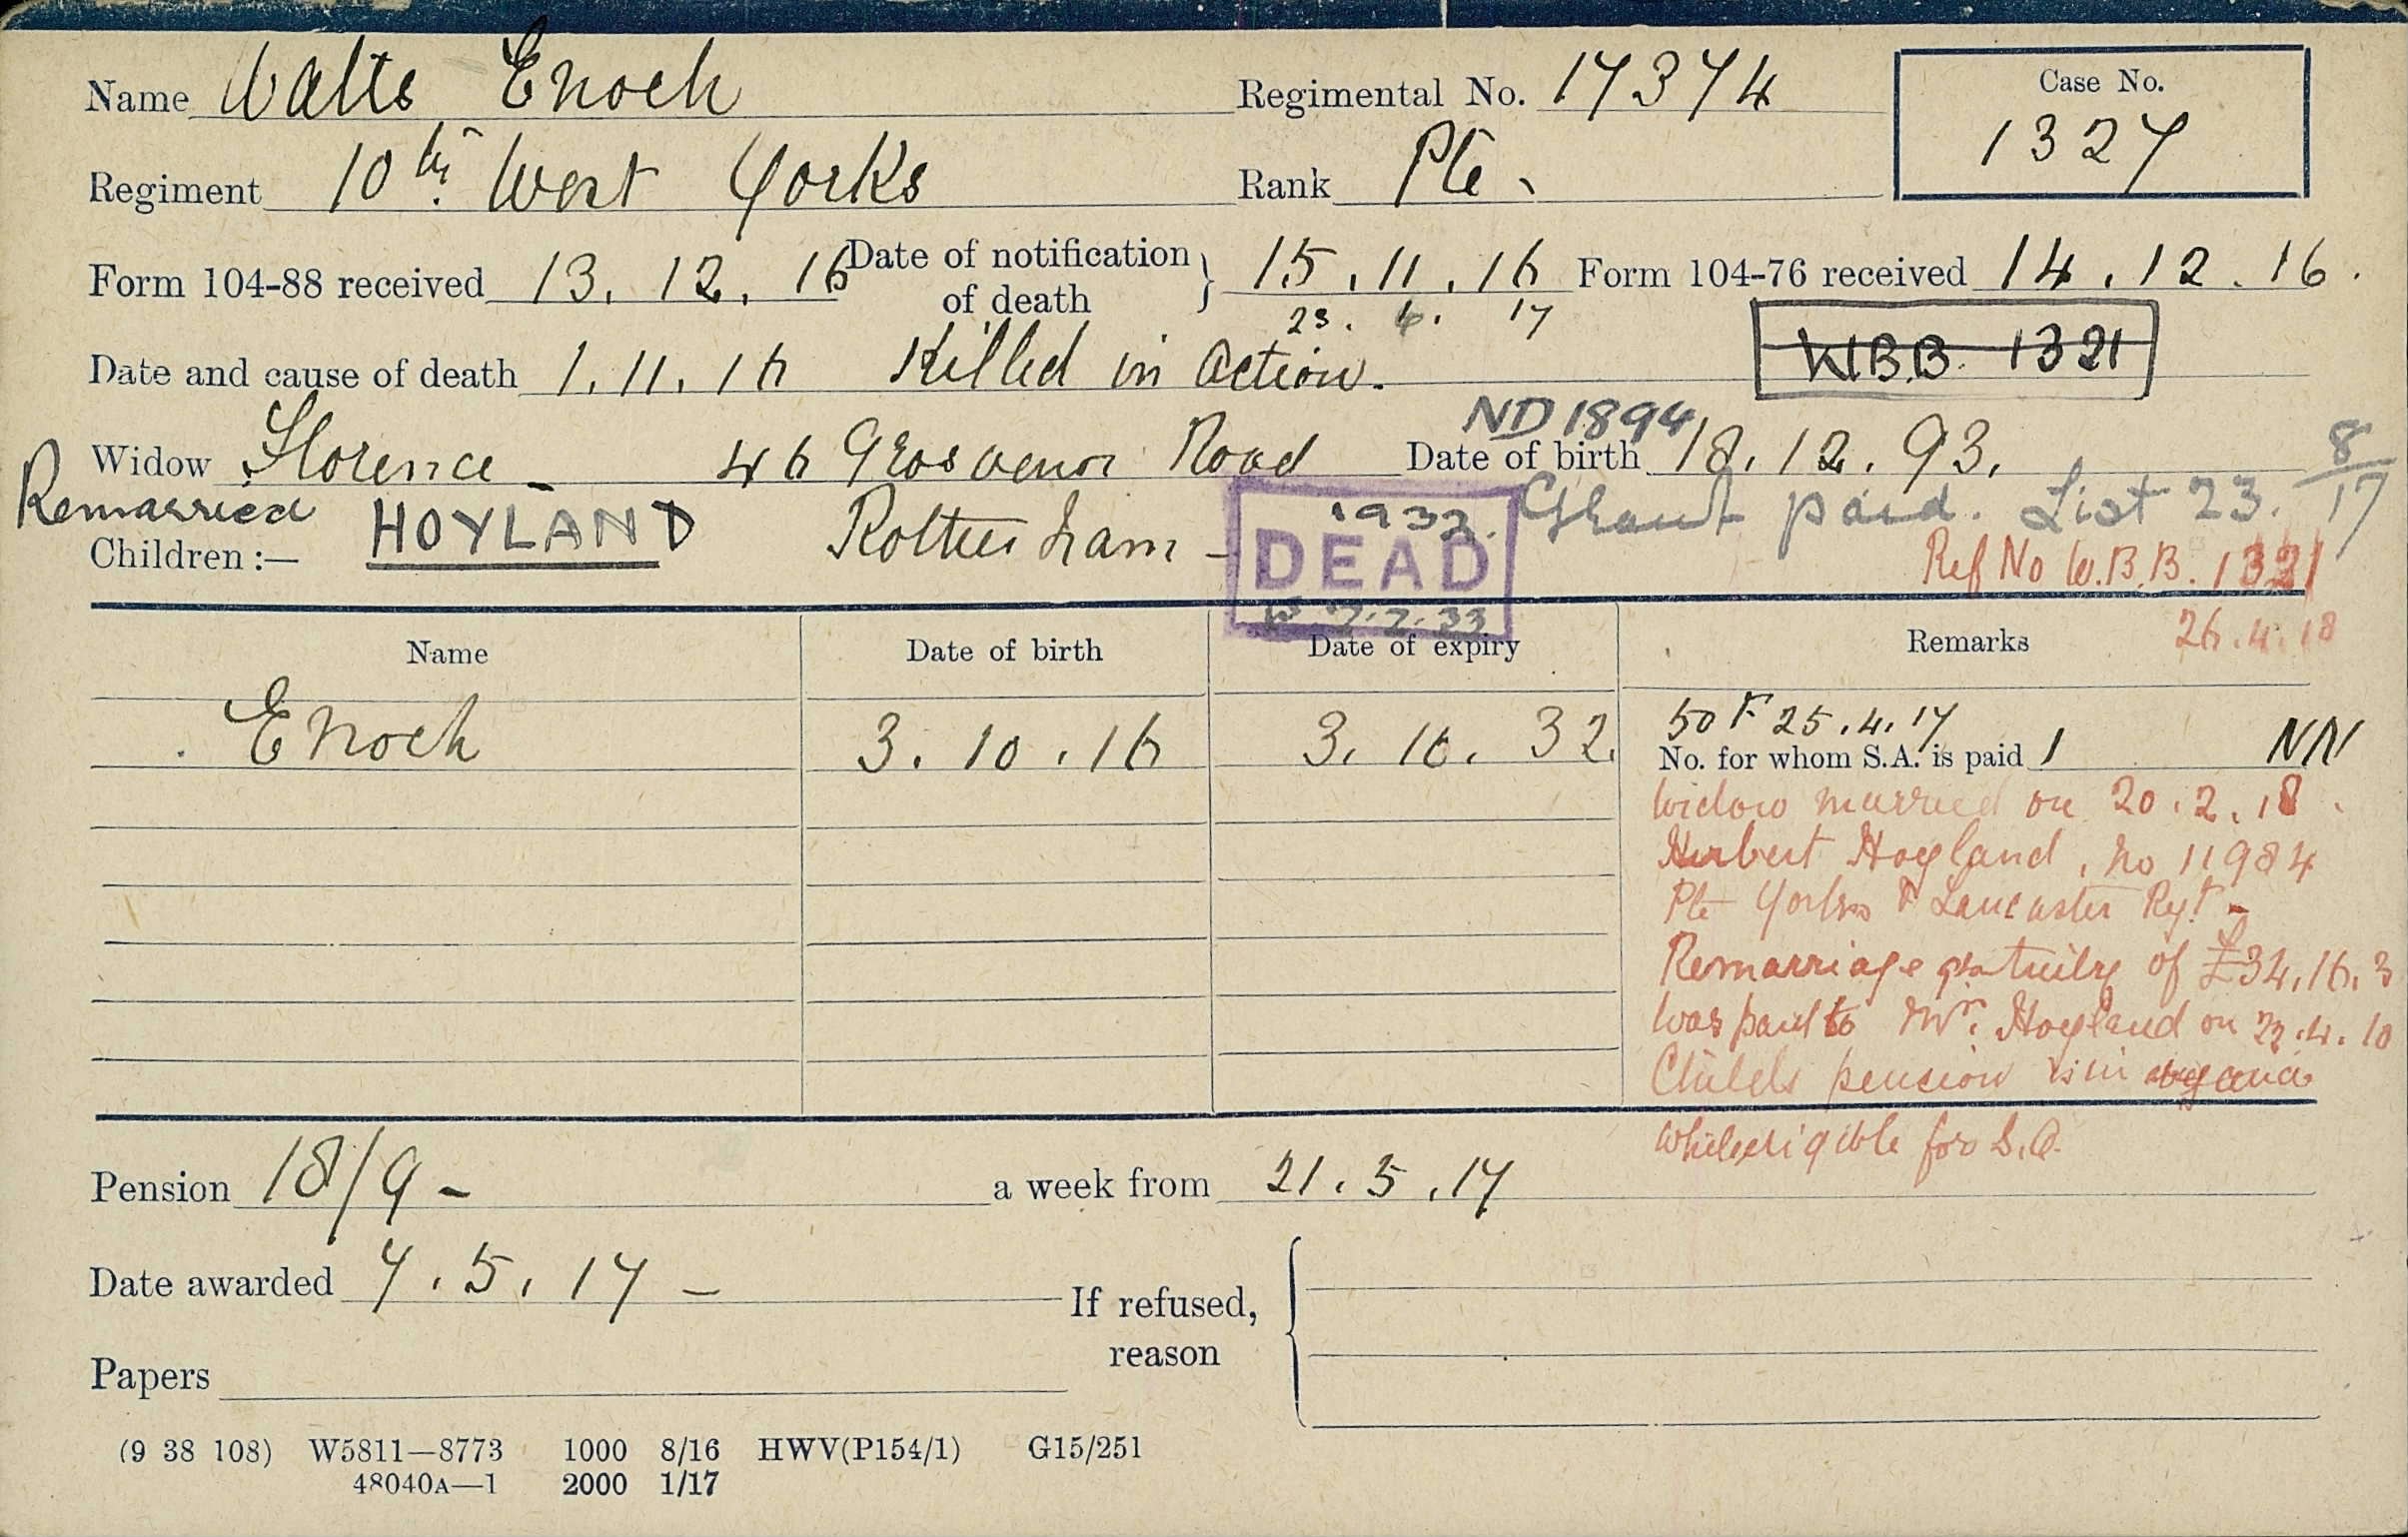 Name Watts Enoch Regimental No. 17374 Case No.
1327
Regiment 10th West Yorks Rank Pte.
Form 104-88 received 13.12.16 Date of notification of death } 15.11.16 Form 104-76 received 14.12.16.
23. 6. 17
Date and cause of death 1.11.16 Killed in Action. W.B.B. 1321
ND 1894
Widow Florence - 46 Grosvenor Road Date of birth 18.12.93.
Remarried HOYLAND Rotherham - Grant paid. List 23. 8/17
Children :—
1932.
DEAD
7.2.33
Ref No W.B.B. 1321
26.4.18
Name Date of birth Date of expiry Remarks
Enoch 3.10.16 3.10.32.
50F 25.4.17
No. for whom S.A. is paid 1 NN
Widow married on 20.2.18.
Herbert Hoyland, no 11984
Pte Yorks & Lancaster Regt -
Remarriage gratuity of £34.16.3
was paid to Mrs. Hoyland on 22.4.18
Childs pension is in
while eligible for S.A.
Pension 18/9 - a week from 21.5.17
Date awarded 7.5.17 -
If refused, reason
Papers
(9 38 108) W5811—8773 1000 8/16 HWV(P154/1) G15/251
48040A—1 2000 1/17